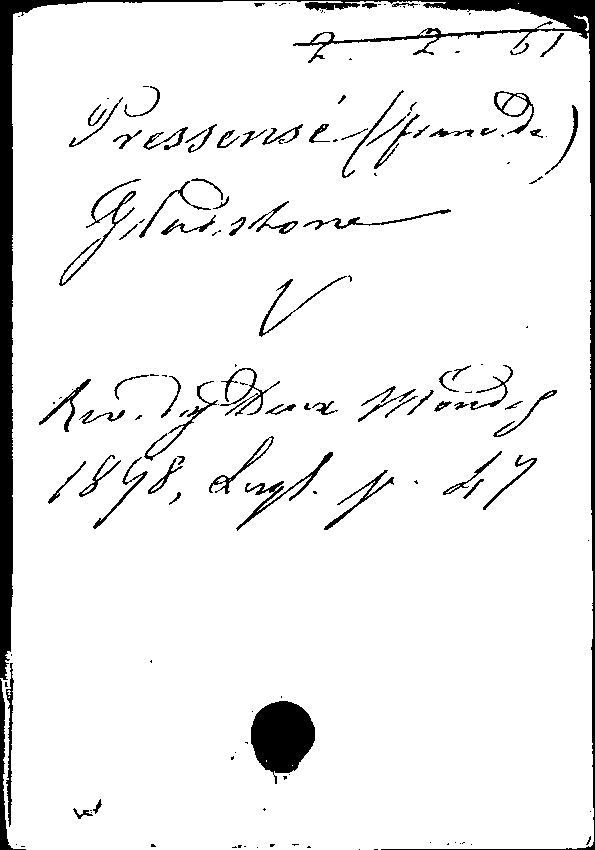 2. 2. 61
Pressensé (Franc. de)
Gladstone
V
Rev. des Deux Mondes
1898, Sept. p. 47